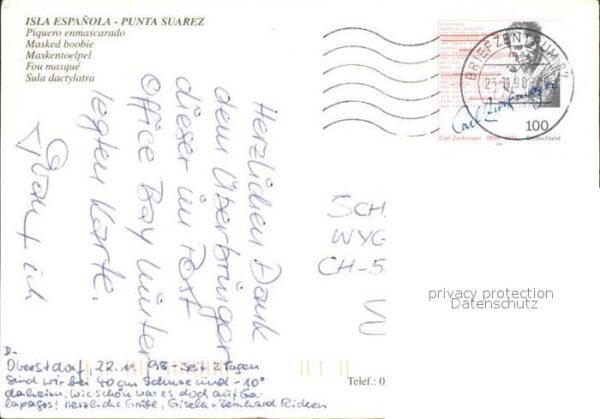 ISLA ESPAÑOLA - PUNTA SUAREZ
Piquero enmascarado
Masked boobie
Maskentoelpel
Fou masqué
Sula dactylatra
BRIEFZENTRUM 87
Carl Zuckmayer
100
Carl Zuckmayer
Deutschland
Herzlichen Dank
dem Überbringer
dieser im Post
Office Bay hinter
legten Karte.
SCH
WYG
CH-5
W
privacy protection
Datenschutz
D-
Oberstdorf 22.11.98. Seit 2 Tagen
sind wir bei 40 cm Schnee und -10°
daheim, wie schön war es doch auf Ga-
lapagos! Herzliche Grüße, Gisela + Reinhard
Telef.: 0